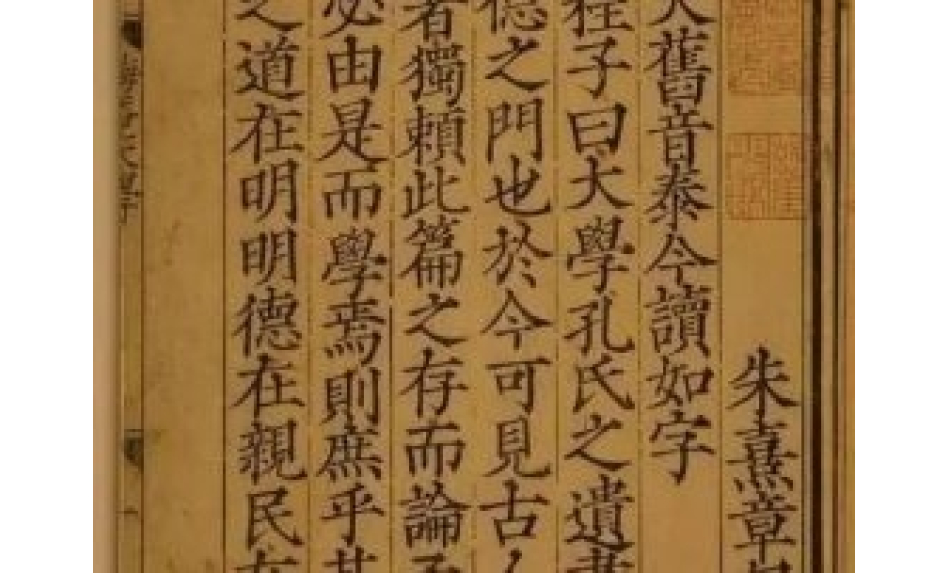 朱熹章
大舊音泰今讀如字
程子曰大學孔氏之遺書
德之門也於今可見古人
者獨賴此篇之存而論
必由是而學焉則庶乎其
之道在明明德在親民在